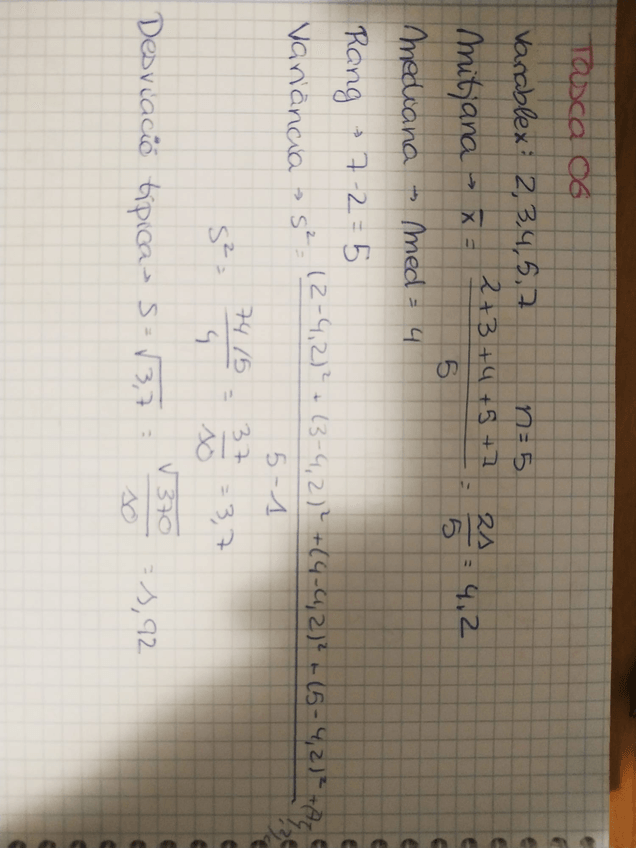 Tasca 06
Variablex: 2,3,4,5,7 n=5
Mitjana → x̄ = (2+3+4+5+7)/5 = 21/5 = 4,2
Mediana → Med = 4
Rang → 7-2 = 5
Variància → s² = ((2-4,2)² + (3-4,2)² + (4-4,2)² + (5-4,2)² + (7-4,2)²)/(5-1)
s² = (74/5)/4 = 37/10 = 3,7
Desviació típica → s = √3,7 = √370/10 = 1,92